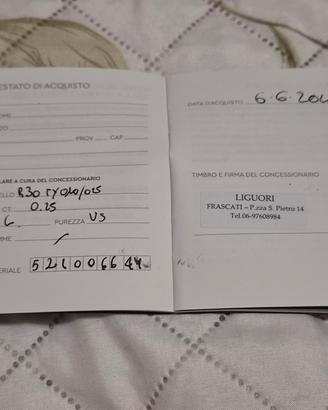 ESTATO DI ACQUISTO
OME
ZO
PROV CAP
LARE A CURA DEL CONCESSIONARIO
ELLO
CT. 0.25
PUREZZA VS
ME
ERIALE
DATA D'ACQUISTO 6.6.20
TIMBRO E FIRMA DEL CONCESSIONARIO
LIGUORI
FRASCATI – P.zza S. Pietro 14
Tel.06-97608984